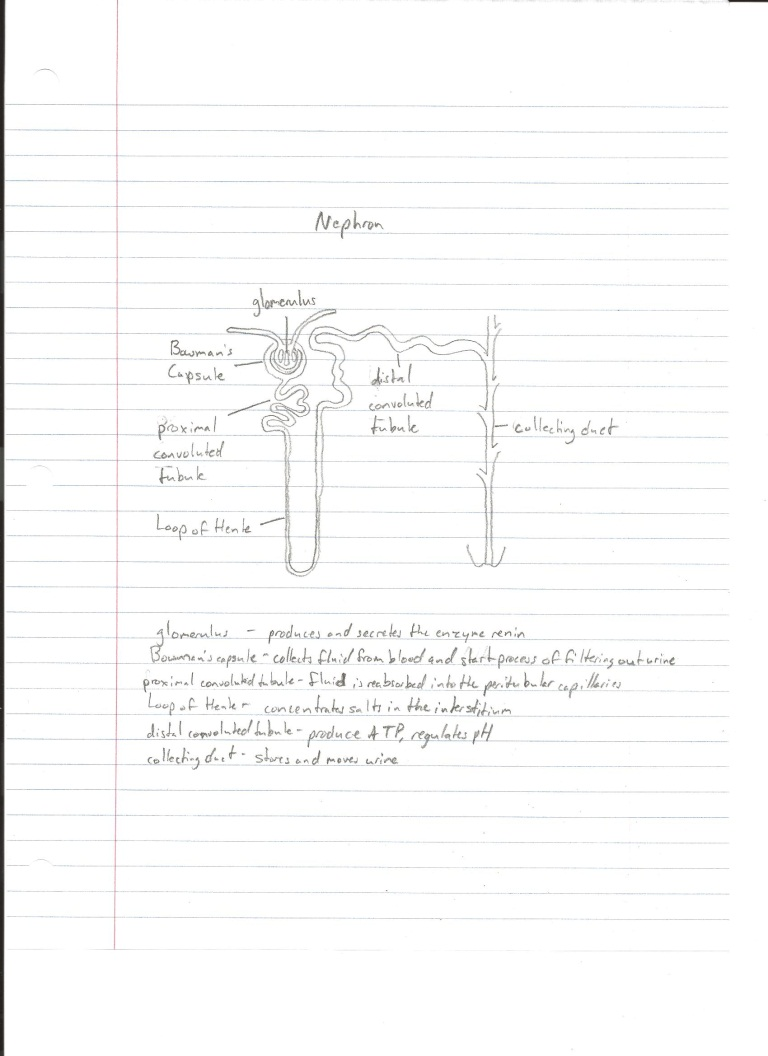 Nephron
glomerulus
Bowman's
Capsule
distal
convoluted
tubule
proximal
convoluted
tubule
collecting duct
Loop of Henle
glomerulus - produces and secretes the enzyme renin
Bowman's capsule - collects fluid from blood and start process of filtering out urine
proximal convoluted tubule - fluid is reabsorbed into the peritubular capillaries
Loop of Henle - concentrates salts in the interstitium
distal convoluted tubule - produce ATP, regulates pH
collecting duct - stores and moves urine